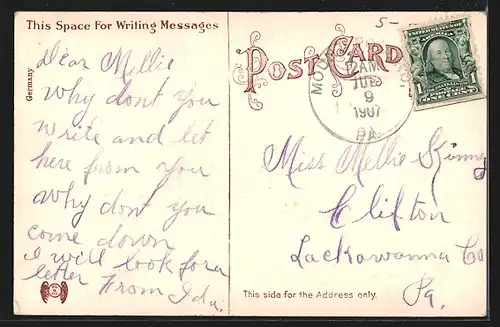 This Space For Writing Messages
Germany
Dear Millie
why dont you
write and let
here from you
why dont you
come down
I will look for a
letter
From Ida
POST CARD
5-
2 AM
JUL
9
1907
PA.
1
Miss Mellie Skinny
Clifton
Lackawanna Co
Pa.
This side for the Address only.